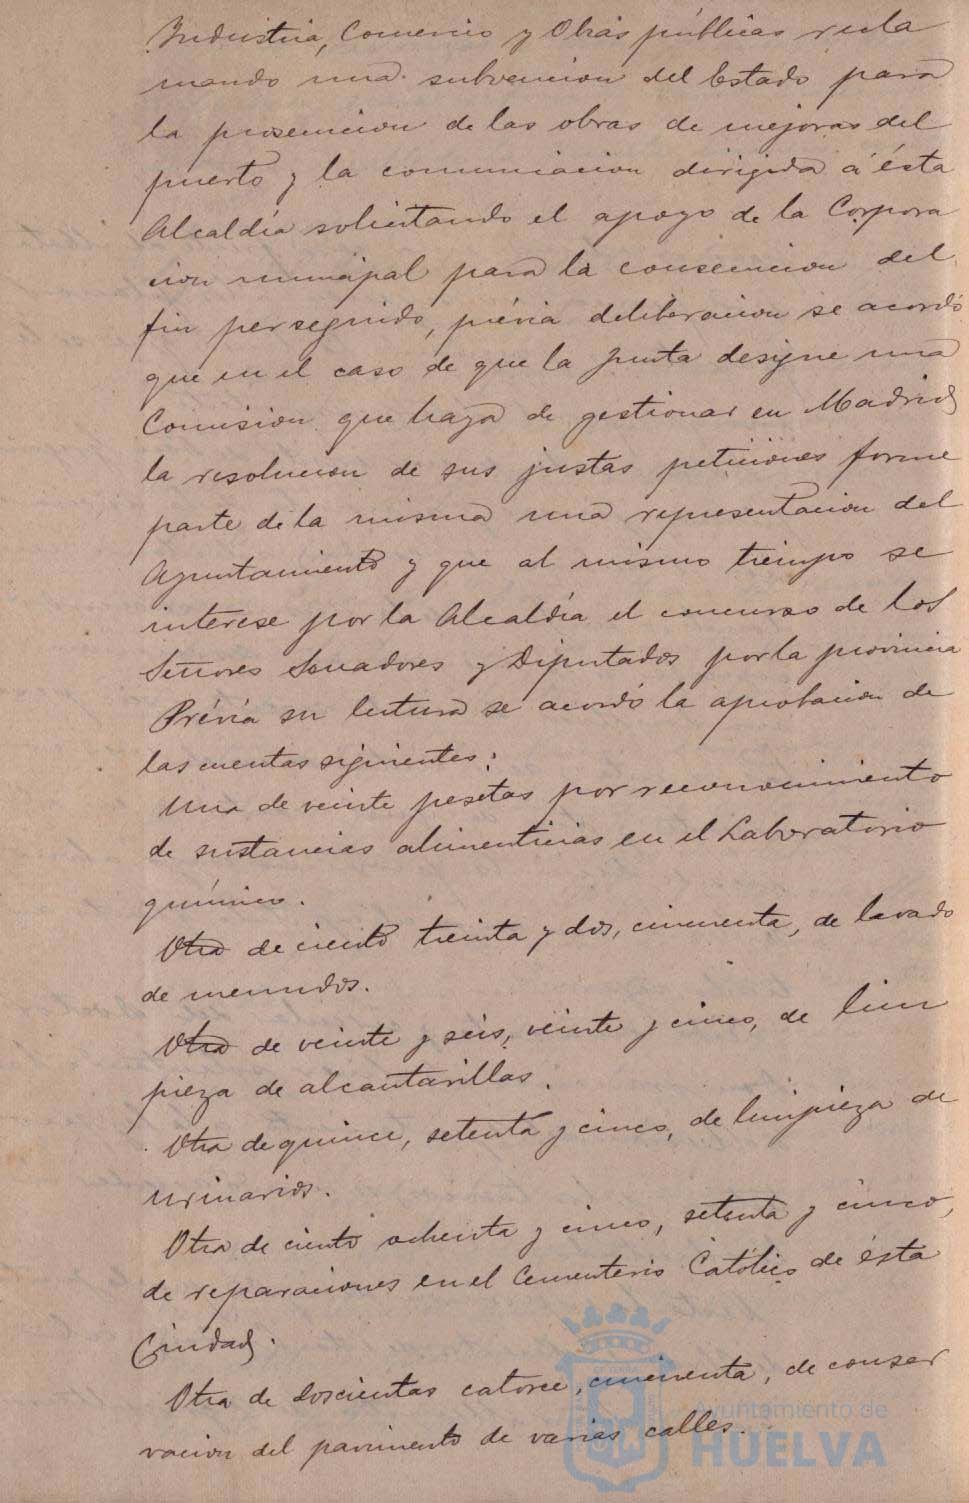 Industria, Comercio y Obras públicas recla
mando una subvencion del Estado para
la prosecucion de las obras de mejoras del
puerto y la comunicacion dirigida á ésta
Alcaldía solicitando el apoyo de la Corpora
cion municipal para la consecucion del
fin perseguido, prévia deliberacion se acordó
que en el caso de que la Junta designe una
Comision que haya de gestionar en Madrid
la resolucion de sus justas peticiones forme
parte de la misma una representacion del
Ayuntamiento y que al mismo tiempo se
interese por la Alcaldía el concurso de los
Señores Senadores y Diputados por la provincia
Prévia su lectura se acordó la aprobacion de
las cuentas siguientes:
Una de veinte pesetas por reconocimiento
de sustancias alimenticias en el Laboratorio
químico.
Otra de ciento treinta y dos, cincuenta, de lavado
de menudos.
Otra de veinte y seis, veinte y cinco, de lim
pieza de alcantarillas.
Otra de quince, setenta y cinco, de limpieza de
urinarios.
Otra de ciento ochenta y cinco, setenta y cinco,
de reparaciones en el Cementerio Católico de ésta
Ciudad.
Otra de doscientas catorce, cincuenta, de conser
vacion del pavimento de varias calles.
Ayuntamiento de
HUELVA